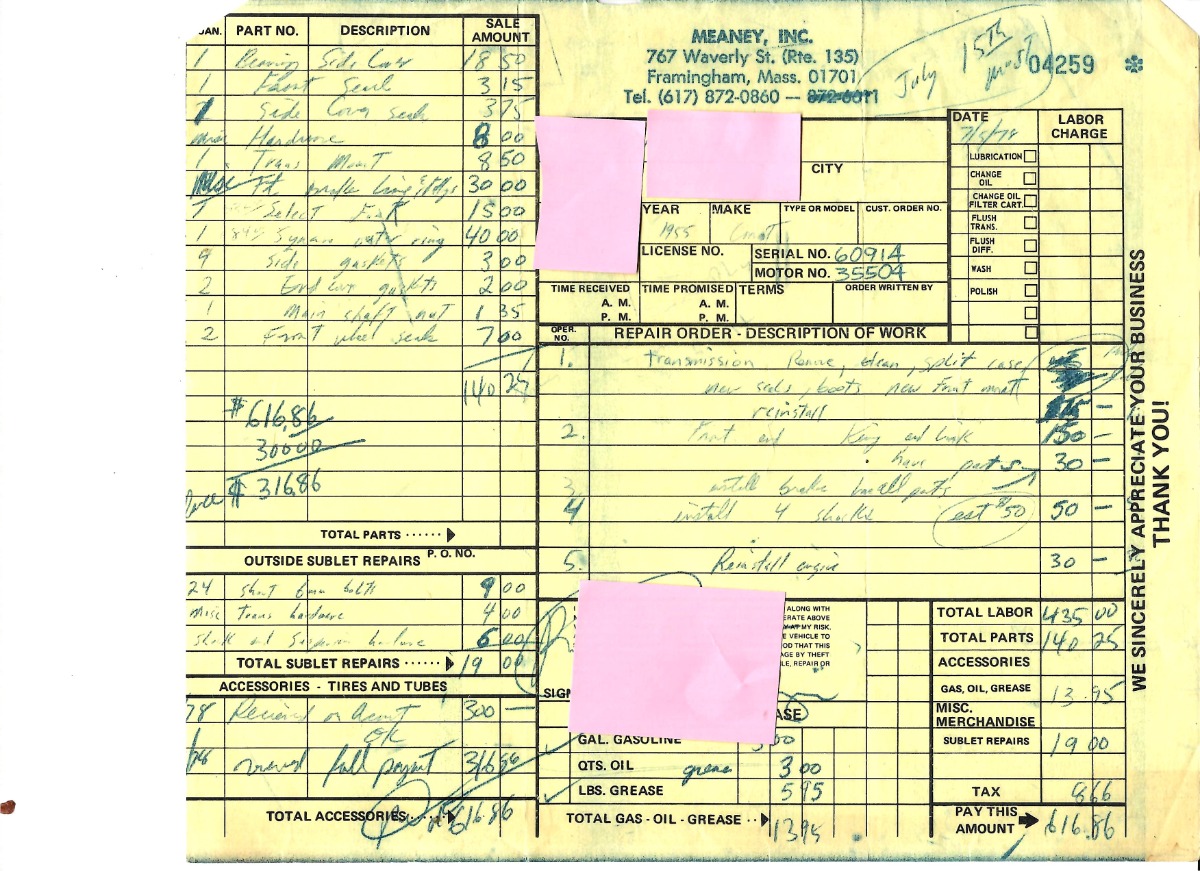 MEANEY, INC.
767 Waverly St. (Rte. 135)
Framingham, Mass. 01701
Tel. (617) 872-0860 —
July 15th
04259 *
QUAN. PART NO. DESCRIPTION SALE AMOUNT
1 Side Cover 18 50
1 Front Seal 3 15
1 Side Cover seal 3 75
misc Hardware 8 00
1 Trans Mount 8 50
Misc Ft 30 00
1 Select Fork 15 00
1 ring 40 00
9 Side gaskets 3 00
2 End Cover gaskets 2 00
1 Main shaft nut 1 35
2 Front wheel seals 7 00
140 25
$616.86
300 00
$316.86
TOTAL PARTS
OUTSIDE SUBLET REPAIRS P. O. NO.
24 short 6mm bolts 9 00
misc Trans hardware 4 00
Shock and Suspension hardware 6 00
TOTAL SUBLET REPAIRS 19 00
ACCESSORIES - TIRES AND TUBES
78 Received on Acount 300 —
OK
78 received full payment 316 86
TOTAL ACCESSORIES 616.86
DATE 7/5/78
LABOR CHARGE
LUBRICATION
CHANGE OIL
CHANGE OIL FILTER CART.
FLUSH TRANS.
FLUSH DIFF.
WASH
POLISH
CITY
YEAR 1955
MAKE
TYPE OR MODEL
CUST. ORDER NO.
LICENSE NO.
SERIAL NO. 60914
MOTOR NO. 35504
TIME RECEIVED A. M. P. M.
TIME PROMISED A. M. P. M.
TERMS
ORDER WRITTEN BY
OPER. NO. REPAIR ORDER - DESCRIPTION OF WORK
1. Transmission Remove, clean, split case
new seals, boots new Front mount
reinstall
2. Front end King and link 150 —
have parts 30 —
3. install brake small parts
4 install 4 shocks (est $50) 50 —
5. Reinstall engine 30 —
ALONG WITH
ERATE ABOVE
AT MY RISK.
E VEHICLE TO
OD THAT THIS
AGE BY THEFT
LE, REPAIR OR
SIGN
GAL. GASOLINE
QTS. OIL grease 3 00
LBS. GREASE 5 95
TOTAL GAS - OIL - GREASE 13 95
TOTAL LABOR 435 00
TOTAL PARTS 140 25
ACCESSORIES
GAS, OIL, GREASE 13.95
MISC. MERCHANDISE
SUBLET REPAIRS 19 00
TAX 8 66
PAY THIS AMOUNT 616.86
WE SINCERELY APPRECIATE YOUR BUSINESS
THANK YOU!